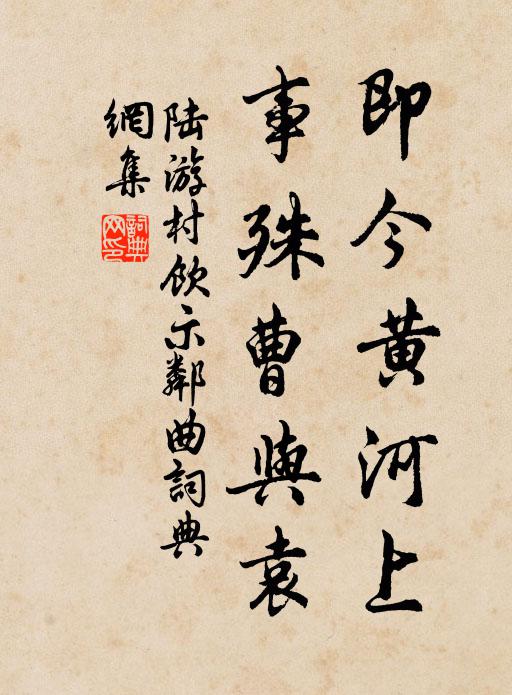 即今黄河上
事殊曹與袁
陆游村飲示鄰曲詞典
網集
詞典
网印